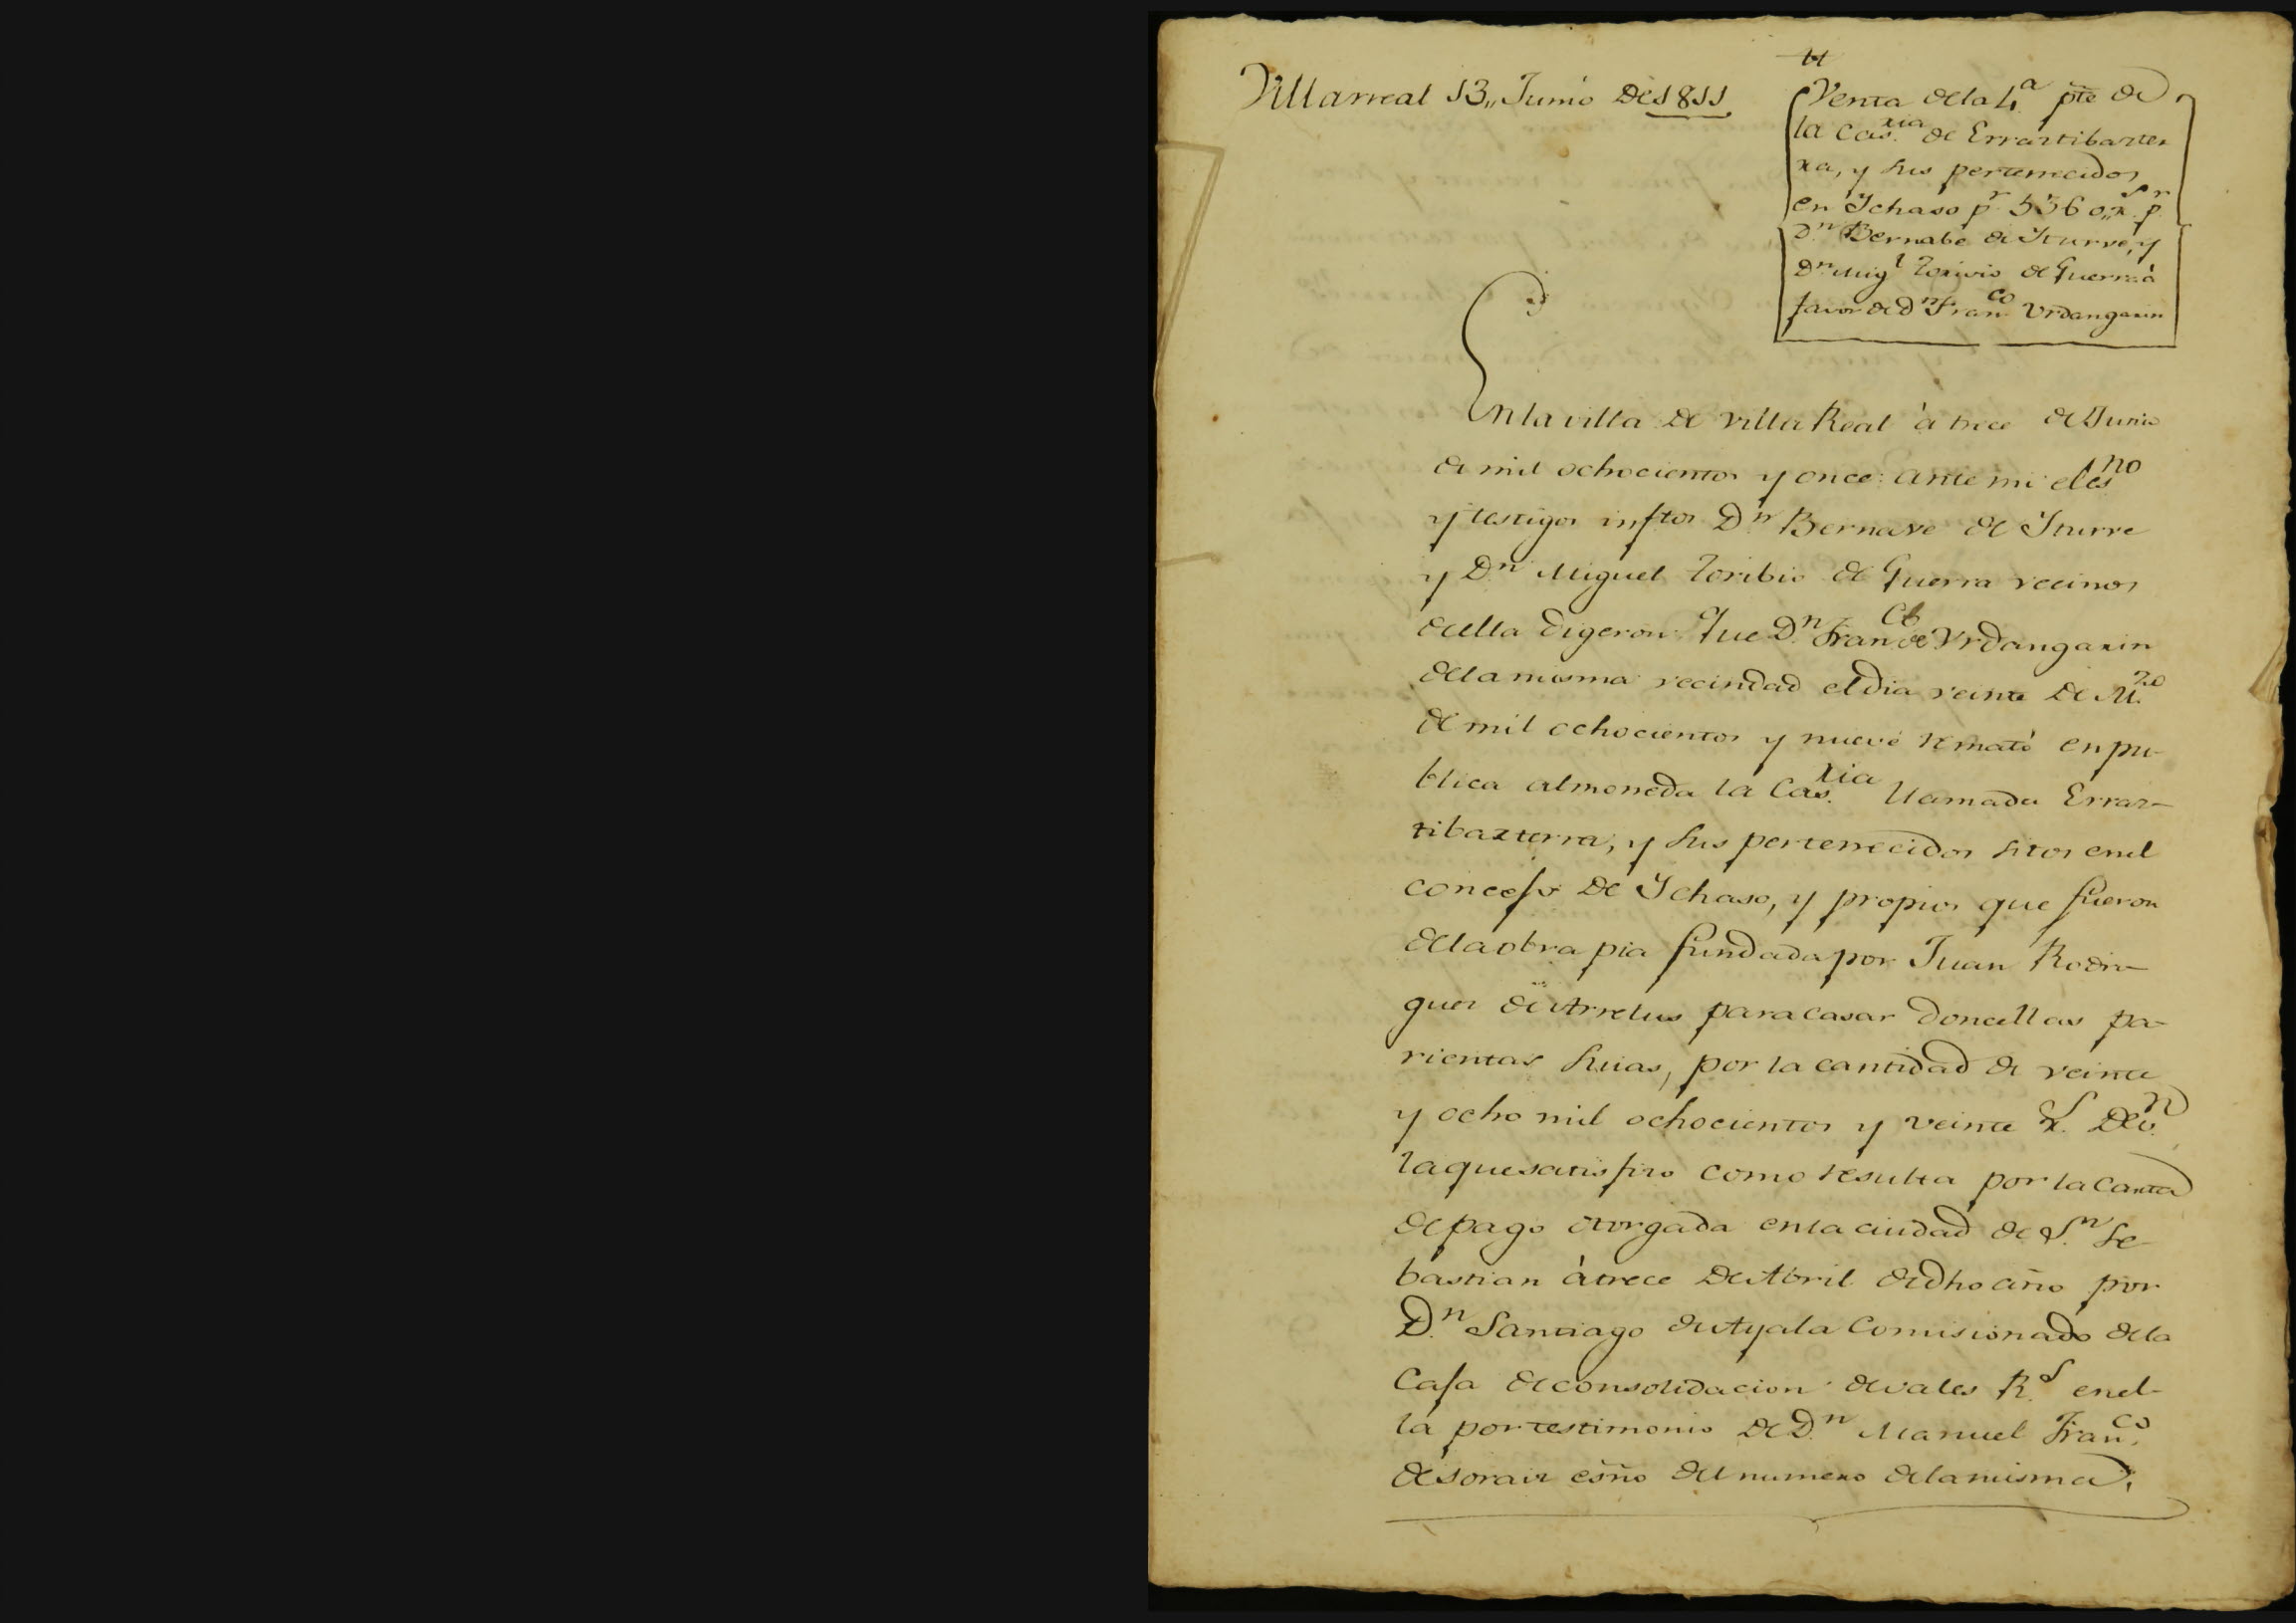 Villarreal 13,, Junio de 1811
Venta de la 4.ª pte de
la Cas.ria de Erraztibazter
ra, y sus pertenecidos
en Ychaso p.r 5560,, r.s p.r
D.n Bernabe de Yturve, y
D.n Mig.l Torivio de Guerra à
favor de D.n Fran.co Vrdangarin
En la villa de Villa Real à trece de Junio
de mil ochocientos y once: ante mi el es.no
y testigos inftos D.n Bernave de Yturve
y D.n Miguel Toribio de Guerra vecinos
de ella digeron: que D.n Fran.co de Vrdangarin
de la misma vecindad el dia veinte de M.zo
de mil ochocientos y nueve remató en pu-
blica almoneda la Cas.ria llamada Erraz-
tibazterra, y sus pertenecidos sitos en el
concejo de Ychaso, y propios que fueron
de la obra pia fundada por Juan Rodri-
guez de Arrelus para casar doncellas pa-
rientas suias, por la cantidad de veinte
y ocho mil ochocientos y veinte r.s de v.n
la que satisfizo como resulta por la Carta
de pago otorgada en la ciudad de S.n Se-
bastian à trece de Abril de dho año por
D.n Santiago de Ayala Comisionado de la
Casa de consolidacion de vales R.s en el-
la por testimonio de D.n Manuel Fran.co
de Soraiz esño del numero de la misma;